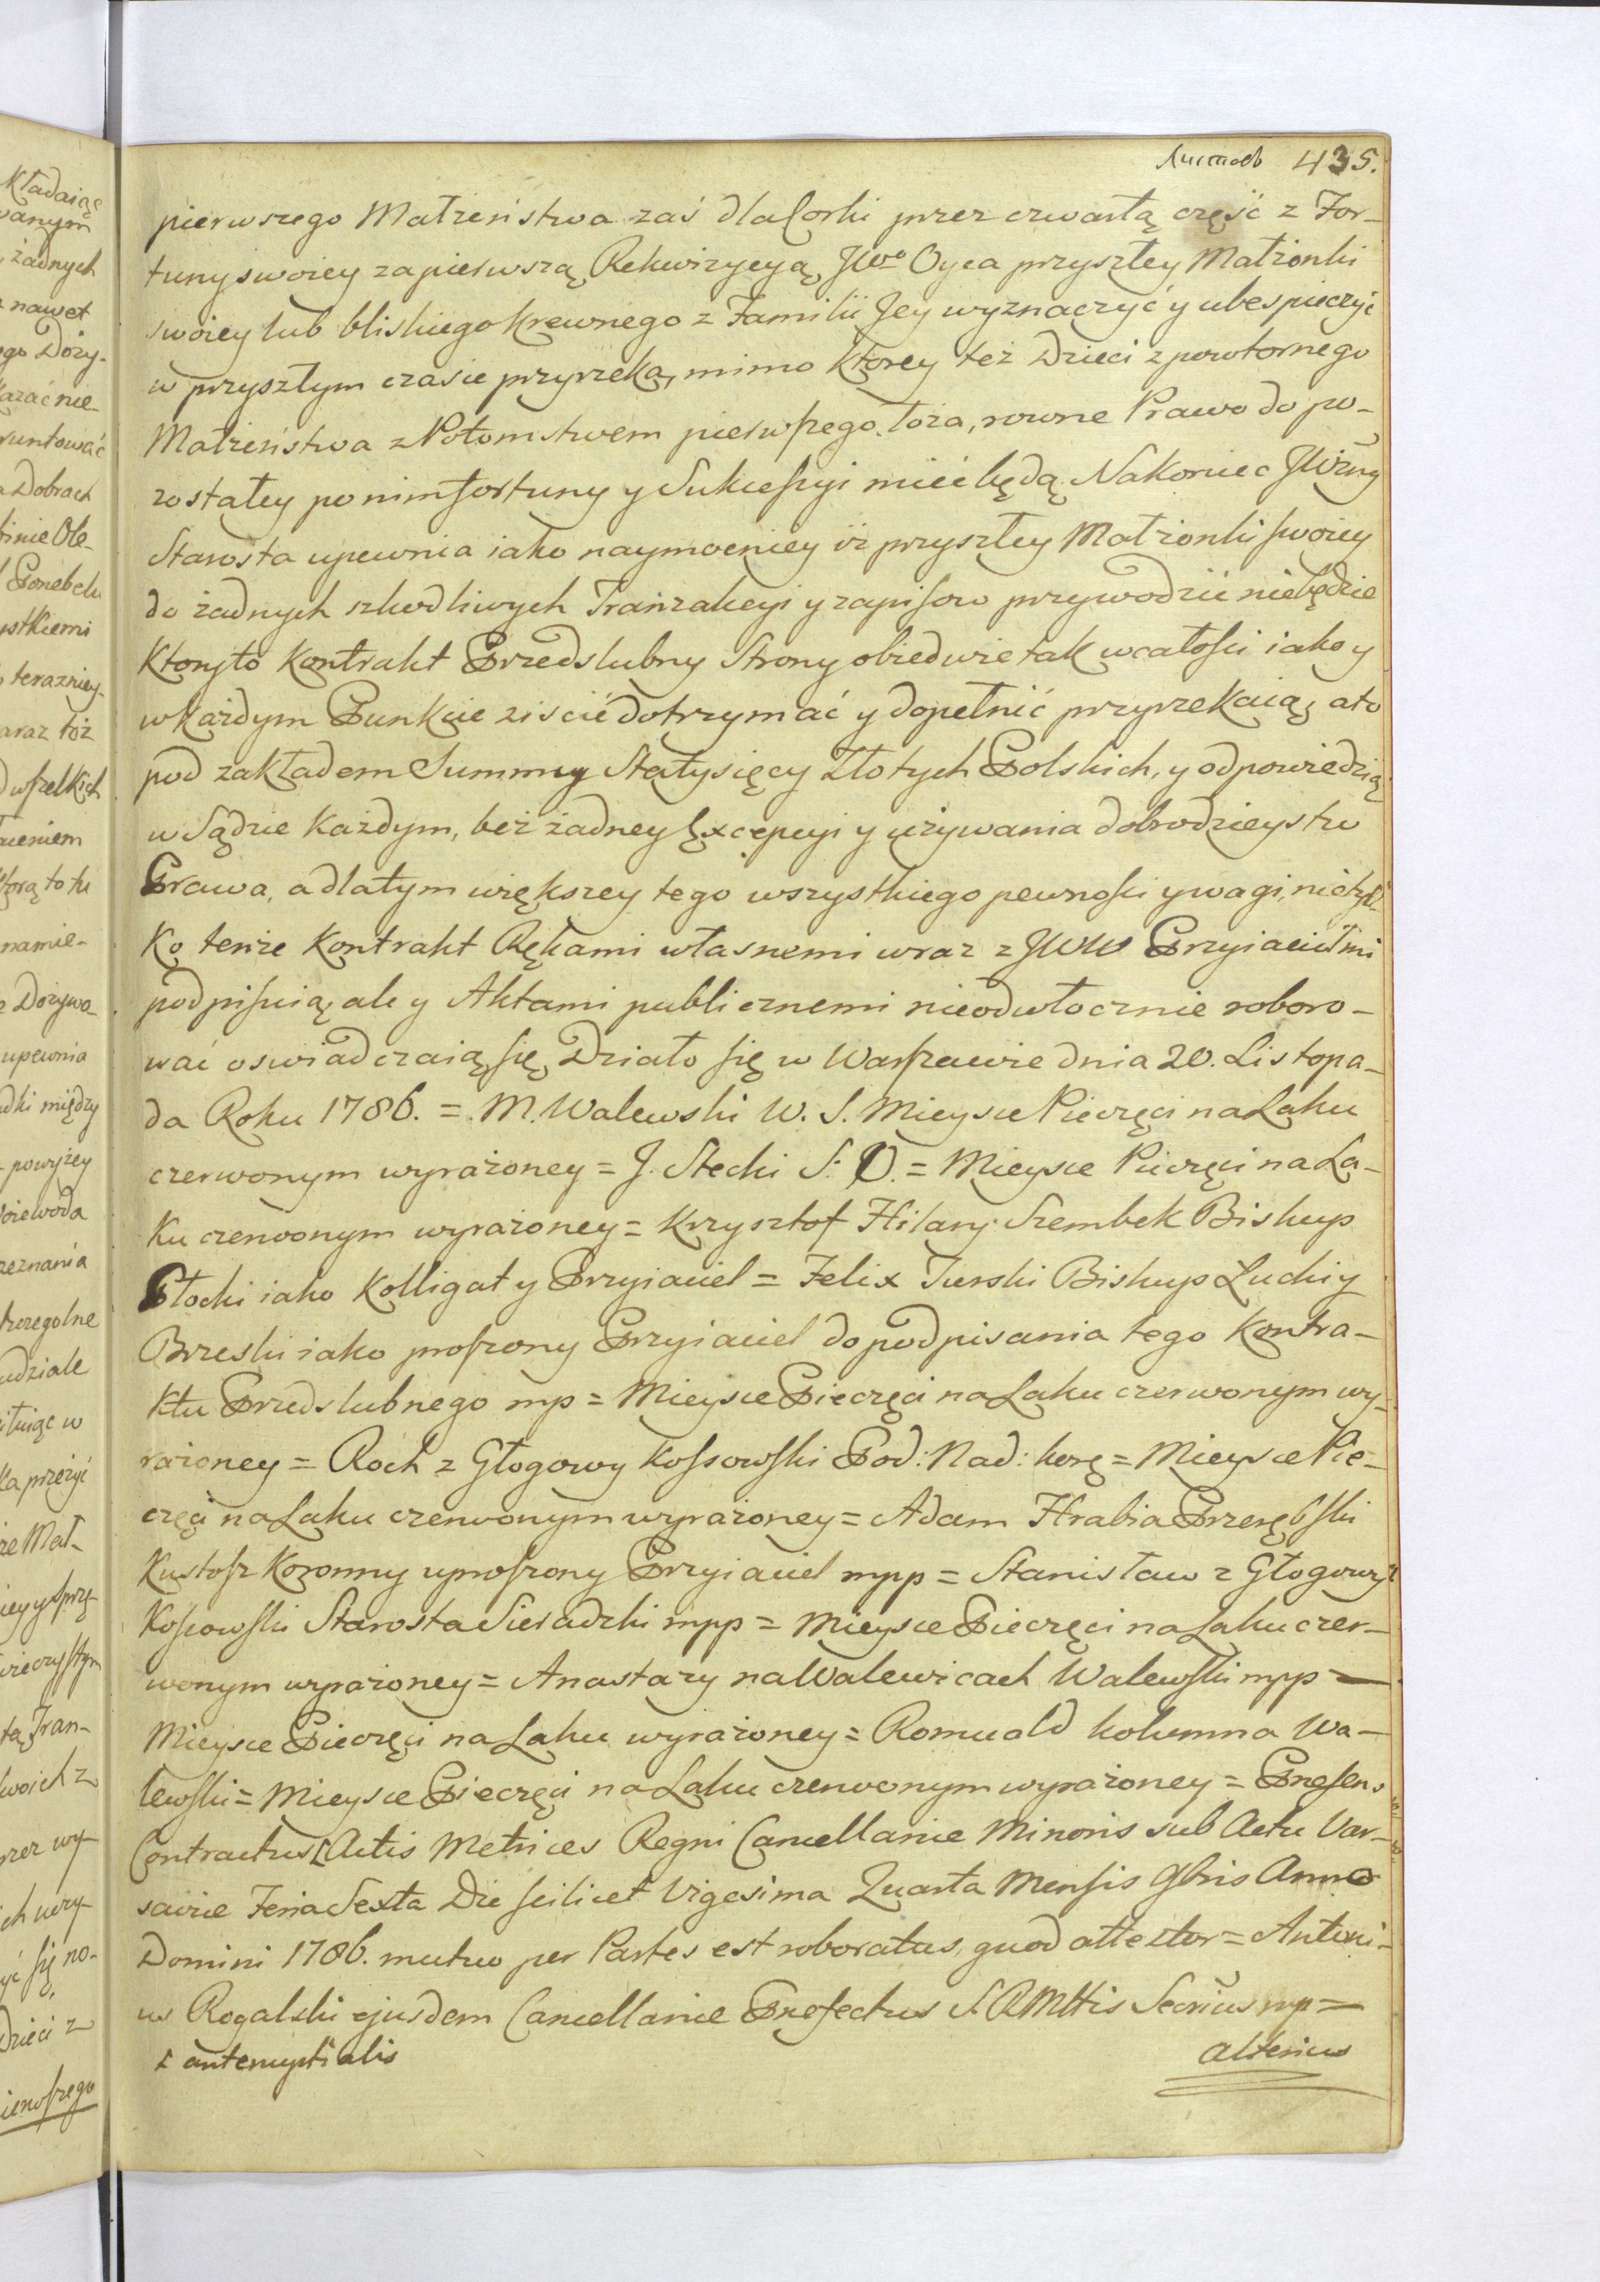 Листовъ 435.
pierwszego Małżeństwa zaś dla Corki przez czwartą część z For-
tuny swoiey za pierwszą Rekwizycyą JWo Oyca przyszłey Małżonki
swoiey lub bliskiego krewnego z Familii Jey wyznaczyć y ubespieczyć
w przyszłym czasie przyrzeka, mimo ktorey też Dzieci z powtornego
Małżeństwa z Potomstwem pierwszego łoża, rowne Prawo do po-
zostałey po nim fortuny y Sukcessyi mieć będą. Nakoniec JWżny
Starosta upewnia iako naymocniey iż przyszłey Małżonki swoiey
do żadnych szkodliwych Tranzakcyi y zapisow przywodzić niebędzie
Ktoryto Kontrakt Przedslubny Strony obiedwie tak wcałości iako y
wkażdym Punkcie ziścić dotrzymać y dopełnić przyrzekaią, a to
pod zakładem Summy Stątysięcy Złotych Polskich, y odpowiedzią
w Sądzie każdym, beż żadney Excepcyi y używania dobrodzieystw
Prawa, a dla tym większey tego wszystkiego pewności y wagi, nietyl-
Ko tenże Kontrakt Rękami własnemi wraz z JWW Przyiaciółmi
podpisuią ale y Aktami publicznemi nieodwłocznie roboro-
wać oswiadczaią się, Działo się w Warszawie dnia 20. Listopa-
da Roku 1786. = M. Walewski W. S. Mieysce Pieczęci na Laku
czerwonym wyrażoney = J. Stecki S. O. = Mieysce Pieczęci na La-
Ku czerwonym wyrażoney = Krzysztof Hilary Szembek Biskup
Płocki iako Kolligat y Przyiaciel = Felix Turski Biskup Łucki y
Brzeski iako proszony Przyiaciel do podpisania tego Kontra-
Ktu Przedslubnego mp = Mieysce Pieczęci na Laku czerwonym wy-
rażoney = Roch z Głogowy Kossowski Pod: Nad: Korę = Mieysce Pie-
częci na Laku czerwonym wyrażoney = Adam Hrabia Przerębski
Kustosz Koronny uproszony Przyiaciel mpp = Stanisław z Głogowy
Kossowski Starosta Sieradzki mpp = Mieysce Pieczęci na Laku czer-
wonym wyrażoney = Anastazy na Walewicach Walewski mpp =
Mieysce Pieczęci na Laku wyrażoney = Romuald Kolumna Wa-
lewski = Mieysce Pieczęci na Laku czerwonym wyrażoney = Præsens
Contractus Actis Metrices Regni Cancellariæ Minoris sub Actu Var-
saviæ Feria Sexta Die scilicet Vigesima Quarta Mensis 9bris Anno
Domini 1786. mutuo per Partes est roboratus, quod attestor = Antoni-
us Rogalski ejusdem Cancellariæ Præfectus S. R. Mttis Secrius mp =
antenuptialis alterius